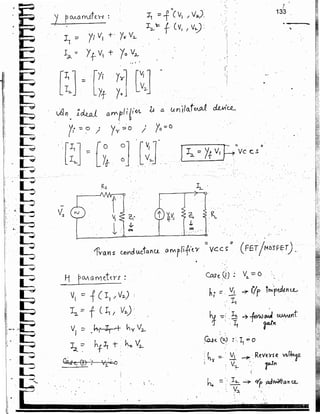 133
y parameters : I₁ = f(V₁, V₂)
I₂ = f(V₁, V₂)
I₁ = yᵢ V₁ + yᵣ V₂
I₂ = y_f V₁ + y₀ V₂
[I₁ I₂] = [yᵢ yᵣ y_f y₀] [V₁ V₂]
An ideal amplifier is a unilateral device.
yᵢ = 0 ; yᵣ = 0 ; y₀ = 0
[I₁ I₂] = [0 0 y_f 0] [V₁ V₂]
I₂ = y_f V₁ → VCCS
Rs I₂
Vs V₁ Zᵢ Z₀ RL
Trans conductance amplifier "VCCS" (FET/MOSFET).
H parameters :
V₁ = f(I₁, V₂)
I₂ = f(I₁, V₂)
V₁ = hᵢ I₁ + hᵣ V₂
I₂ = h_f I₁ + h₀ V₂
Case (1) : V₂ = 0
Case (1) : V₂ = 0
hᵢ = V₁/I₁ → i/p impedence
h_f = I₂/I₁ → forward current gain
Case (2) : I₁ = 0
hᵣ = V₁/V₂ → Reverse voltage gain
h₀ = I₂/V₂ → o/p admittance